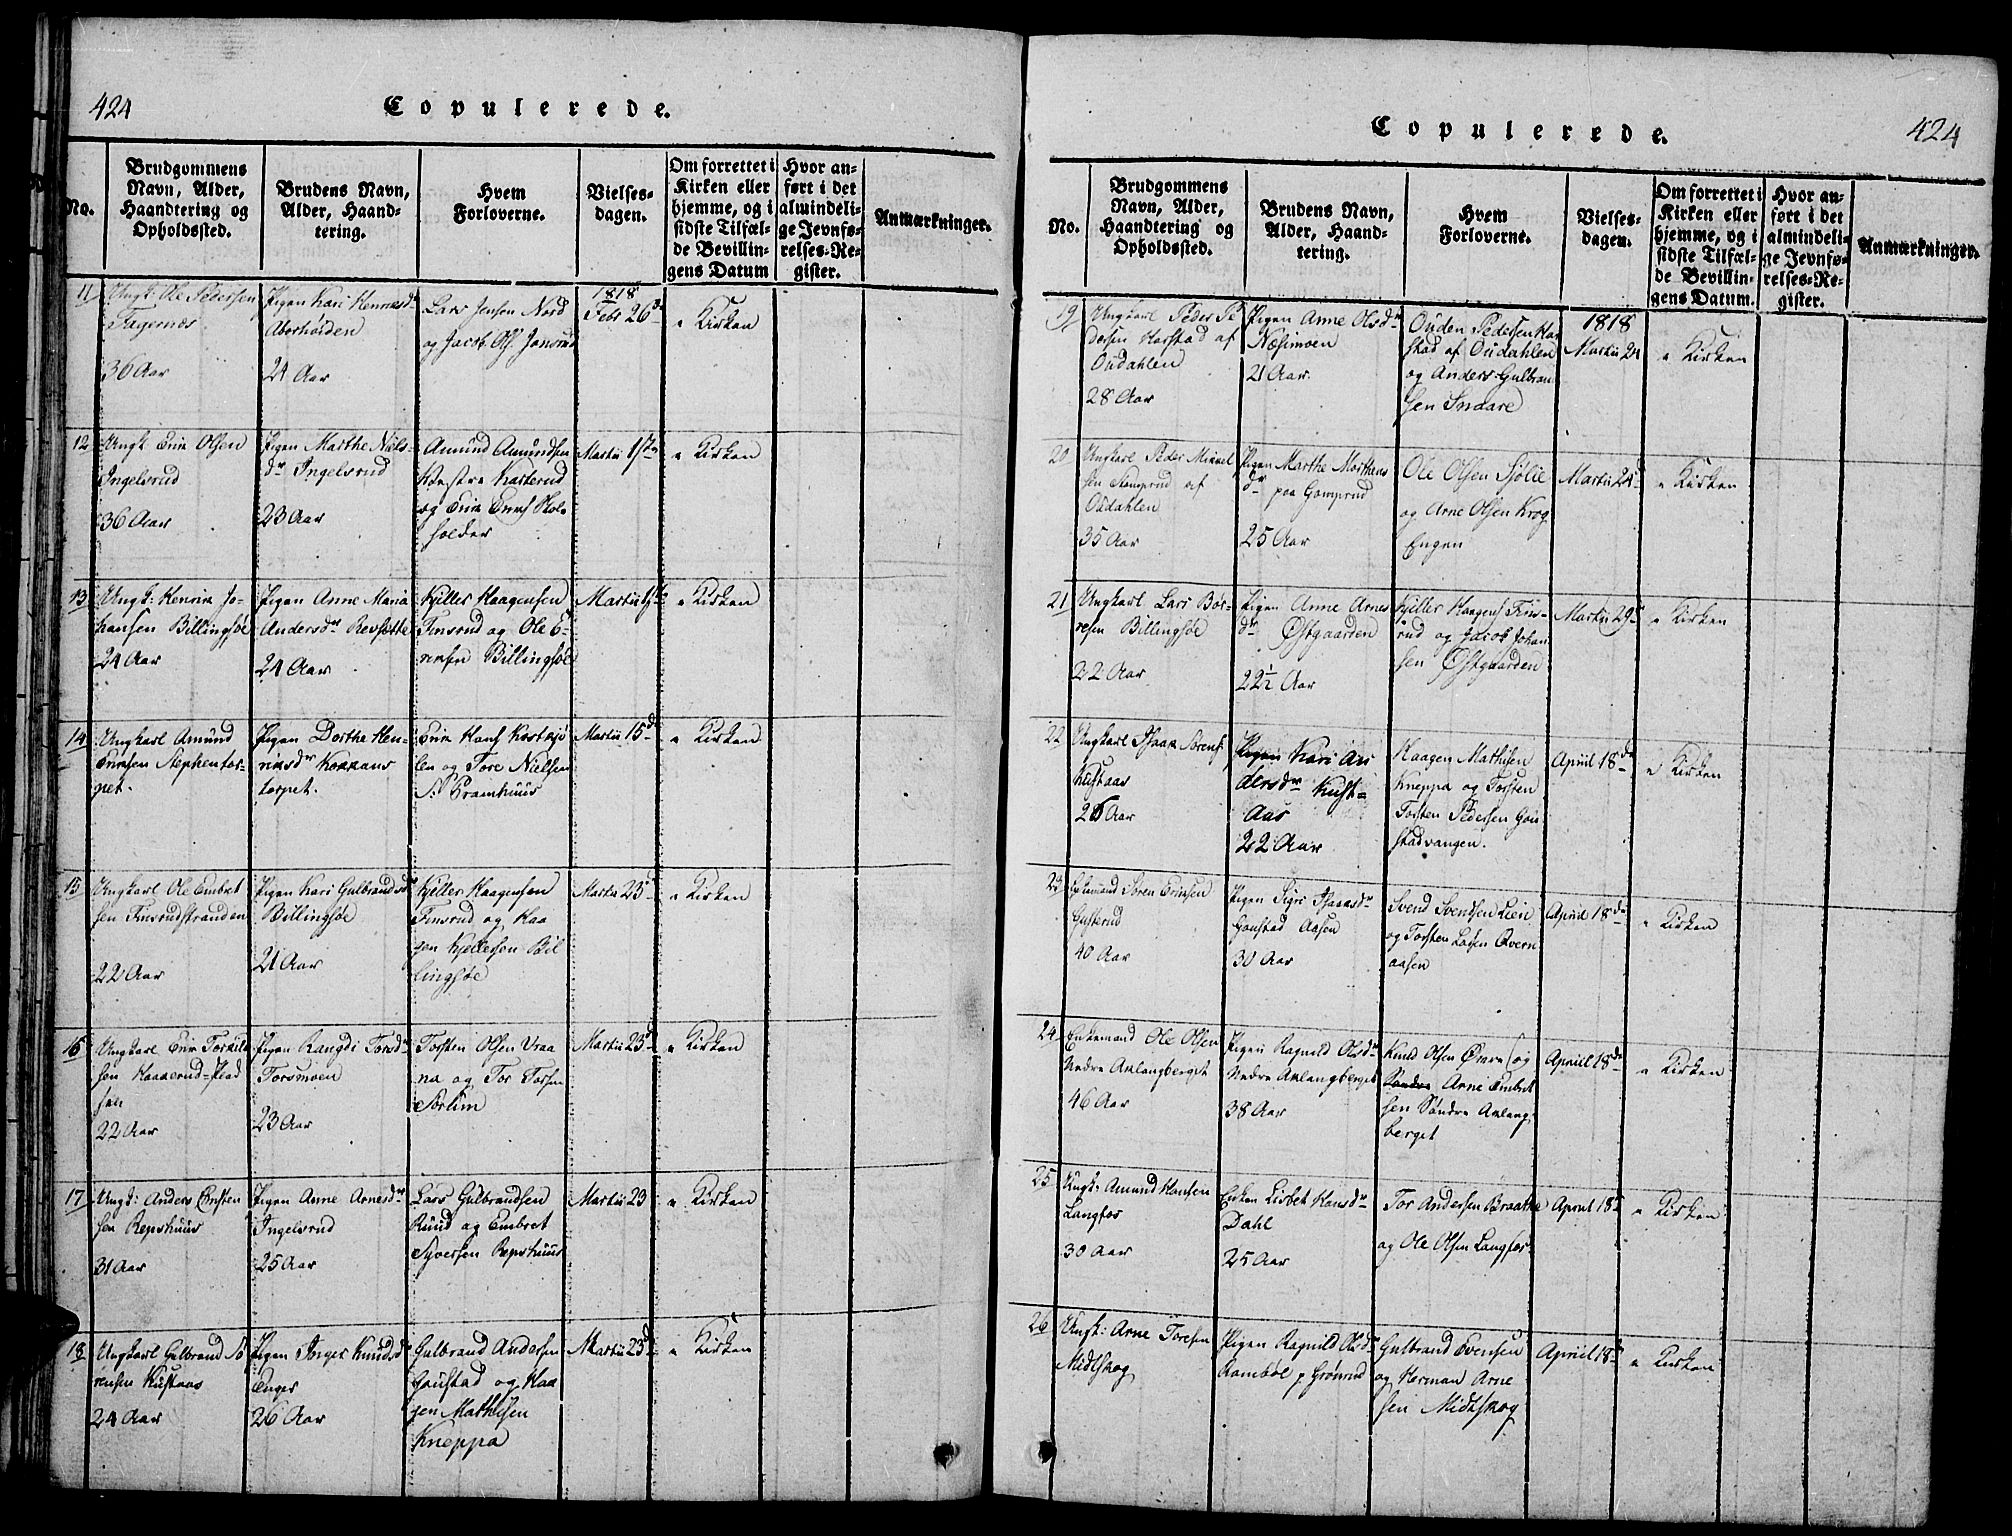 424
Copulerede.
No.
Brudgommens
Navn, Alder,
Haandtering og
Opholdssted.
Brudens Navn,
Alder, Haand-
tering.
Hvem
Forloverne.
Vielses-
dagen.
Om forrettet i
Kirken eller
hjemme, og i
sidste Tilfæl-
de Bevillin-
gens Datum
Hvor an-
ført i det
almindeli-
ge Jevnfø-
relses-Re-
gister.
Anmærkninger.
11
Ungk: Ole Pedersen
Fagernæs
36 Aar
Pigen Kari
24 Aar
Lars Jensen Nord
og Jacob Ols: Jonsrud
1818
Febr 26d
Kirken
12
Ungk Erik Olsen
Ingelsrud
36 Aar
Pigen Marthe Niels-
dr Ingelsrud
23 Aar
Amund Amundsen
Vestre Kasterud
og Erik
holder
Martii 17de
Kirken
13
Ungk: Henrik Jo-
hansen Billingsöe
24 Aar
Pigen Anne Maria
Andersdr Revsætte
24 Aar
Kjilles Haagensen
Finsrud og Ole E-
riksen Billingsöe
Martii
Kirken
14
Ungkarl Amund
Eriksen Stephentor-
pet.
Pigen Dorthe Hen-
riksdr
torpet.
Erik Hans
len og Tore Nielsen
Martii 15d
Kirken
15
Ungkarl Ole Embret
sen Finsrudstranden
22 Aar
Pigen Kari Gulbrandsdr
Billingsöe
21 Aar
Kjilles Haagensen
Finsrud og Haa
gen Kjellesen Bil
lingsöe
Martii 23d
Kirken
16
Ungkarl Erik Torkild
sen
22 Aar
Pigen Rangdi Torsdr
Torsmoen
23 Aar
Torsten Olsen Vraa
na og Tor
Martii 23d
Kirken
17
Ungk: Anders
sen Repshuus
31 Aar
Pigen Anne Arnesdr
Ingelsrud
25 Aar
Lars Gulbrandsen
Ruud og Embret
Syversen Repshuus
Martii 23
Kirken
18
Ungkarl Gulbrand Sö
rensen Kustaas
24 Aar
Pigen Knudsdr
Enger
26 Aar
Gulbrand Andersen
Gaustad og Haa
gen Mathisen
Kneppa
Martii 23d
Kirken
424
Copulerede.
No.
Brudgommens
Navn, Alder,
Haandtering og
Opholdssted.
Brudens Navn,
Alder, Haand-
tering.
Hvem
Forloverne.
Vielses-
dagen.
Om forrettet i
Kirken eller
hjemme, og i
sidste Tilfæl-
de Bevillin-
gens Datum.
Hvor an-
ført i det
almindeli-
ge Jevnfø-
relses-Re-
gister.
Anmærkninger.
19
Ungkarl Peder Pe
dersen Harstad af
Oudahlen
28 Aar
Pigen Anne Olsdr
Næsimoen
21 Aar
Ouden Pedersen Har
stad af Oudahlen
og Anders Gulbran
sen Snaare
1818
Martii 24
Kirken
20
Ungkarl Peder Mikkel
sen af
Oudahlen
35 Aar
Pigen Marthe Morthens
dr paa Gomprud
25 Aar
Ole Olsen Sjölie
og Arne Olsen Krog
Engen
Martii 24d
Kirken
21
Ungkarl Lars Bör-
resen Billingsöe
22 Aar
Pigen Anne Arnes
dr Östgaarden
22½ Aar
Kjilles Haagens Fins-
rud og Jacob Johan
sen Östgaarden
Martii 29d
Kirken
22
Ungkarl Isaak Sörens:
Kustaas
26 Aar
Pigen Kari An
dersdr Kust-
Aas
22 Aar
Haagen Mathisen
Kneppa og Torsten
Torsten Pedersen Gou
stadvangen.
April 18de
Kirken
23
Enkemand Sören Eriksen
40 Aar
Pigen Sigri Isaaksdr
Goustad Aasen
30 Aar
Svend Svendsen Lien
og Torsten Övern
aasen
April 18de
Kirken
24
Enkemand Ole Olsen
Nedre Aslangberget
46 Aar
Pigen Ragnild Olsdr
Nedre Aslangberget
38 Aar
Knud Olsen og
Arne Embret
sen Söndre Aslang
berget
April 18de
Kirken
25
Ungk: Amund Hansen
Langfos
30 Aar
Enken Lisbet Hansdr
Dahl
25 Aar
Tor Andersen Braathe
og Ole Olsen Langfos.
April 18d
Kirken
26
Ungk: Arne Toresen
Midtskog
Pigen Ragnild Olsdr
Ramböl p Grönrud
Gulbrand Evensen
og Herman Arne
sen Midtskog
April 18d
Kirken